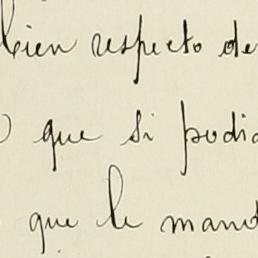 bien respecto de
que si podia
que le mand